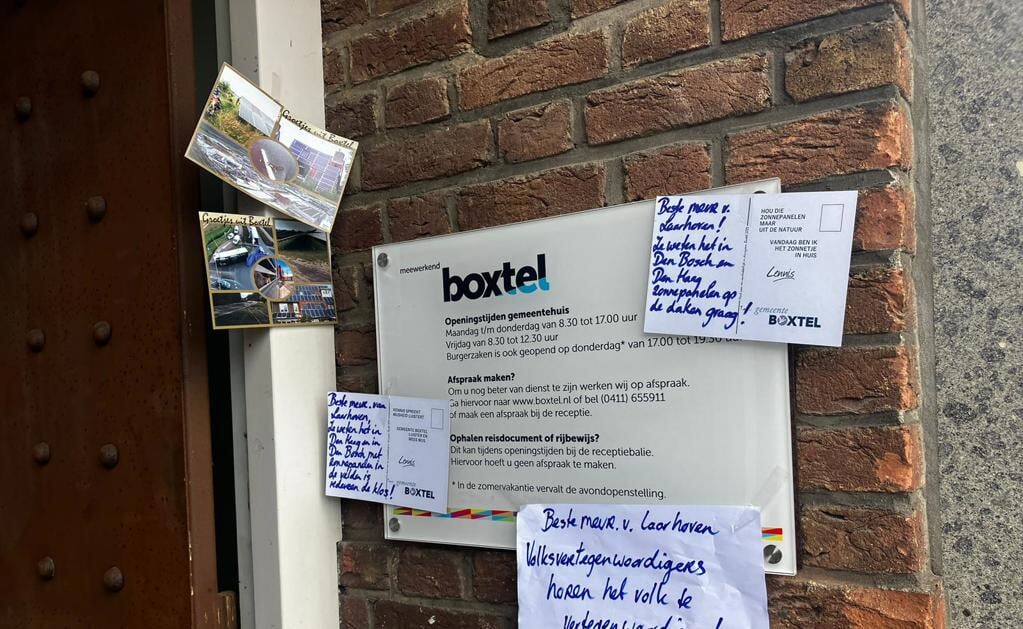 Groetjes uit Boxtel
Groetjes uit Boxtel
meewerkend
boxtel
Openingstijden gemeentehuis
Maandag t/m donderdag van 8.30 tot 17.00 uur
Vrijdag van 8.30 tot 12.30 uur
Burgerzaken is ook geopend op donderdag* van 17.00 tot 19.30
Afspraak maken?
Om u nog beter van dienst te zijn werken wij op afspraak.
Ga hiervoor naar www.boxtel.nl of bel (0411) 655911
of maak een afspraak bij de receptie.
Ophalen reisdocument of rijbewijs?
Dit kan tijdens openingstijden bij de receptiebalie.
Hiervoor hoeft u geen afspraak te maken.
* In de zomervakantie vervalt de avondopenstelling.
Beste mevr. v.
Laarhoven!
Ze weten het in
Den Bosch en
Den Haag
zonnepanelen op
de daken graag!
HOU DIE
ZONNEPANELEN
MAAR
UIT DE NATUUR
VANDAAG BEN IK
HET ZONNETJE
IN HUIS
Lennis
gemeente
BOXTEL
Beste mevr. van
Laarhoven,
Ze weten het in
Den Haag en in
Den Bosch met
zonnepanelen in
de velden is
iedereen de klos!
KENNIS SPREEKT
WIJSHEID LUISTERT
GEMEENTE BOXTEL
LUISTER EN
WEES WIJS
Lennis
gemeente
BOXTEL
Beste mevr. v. Laarhoven
Volksvertegenwoordigers
horen het volk te